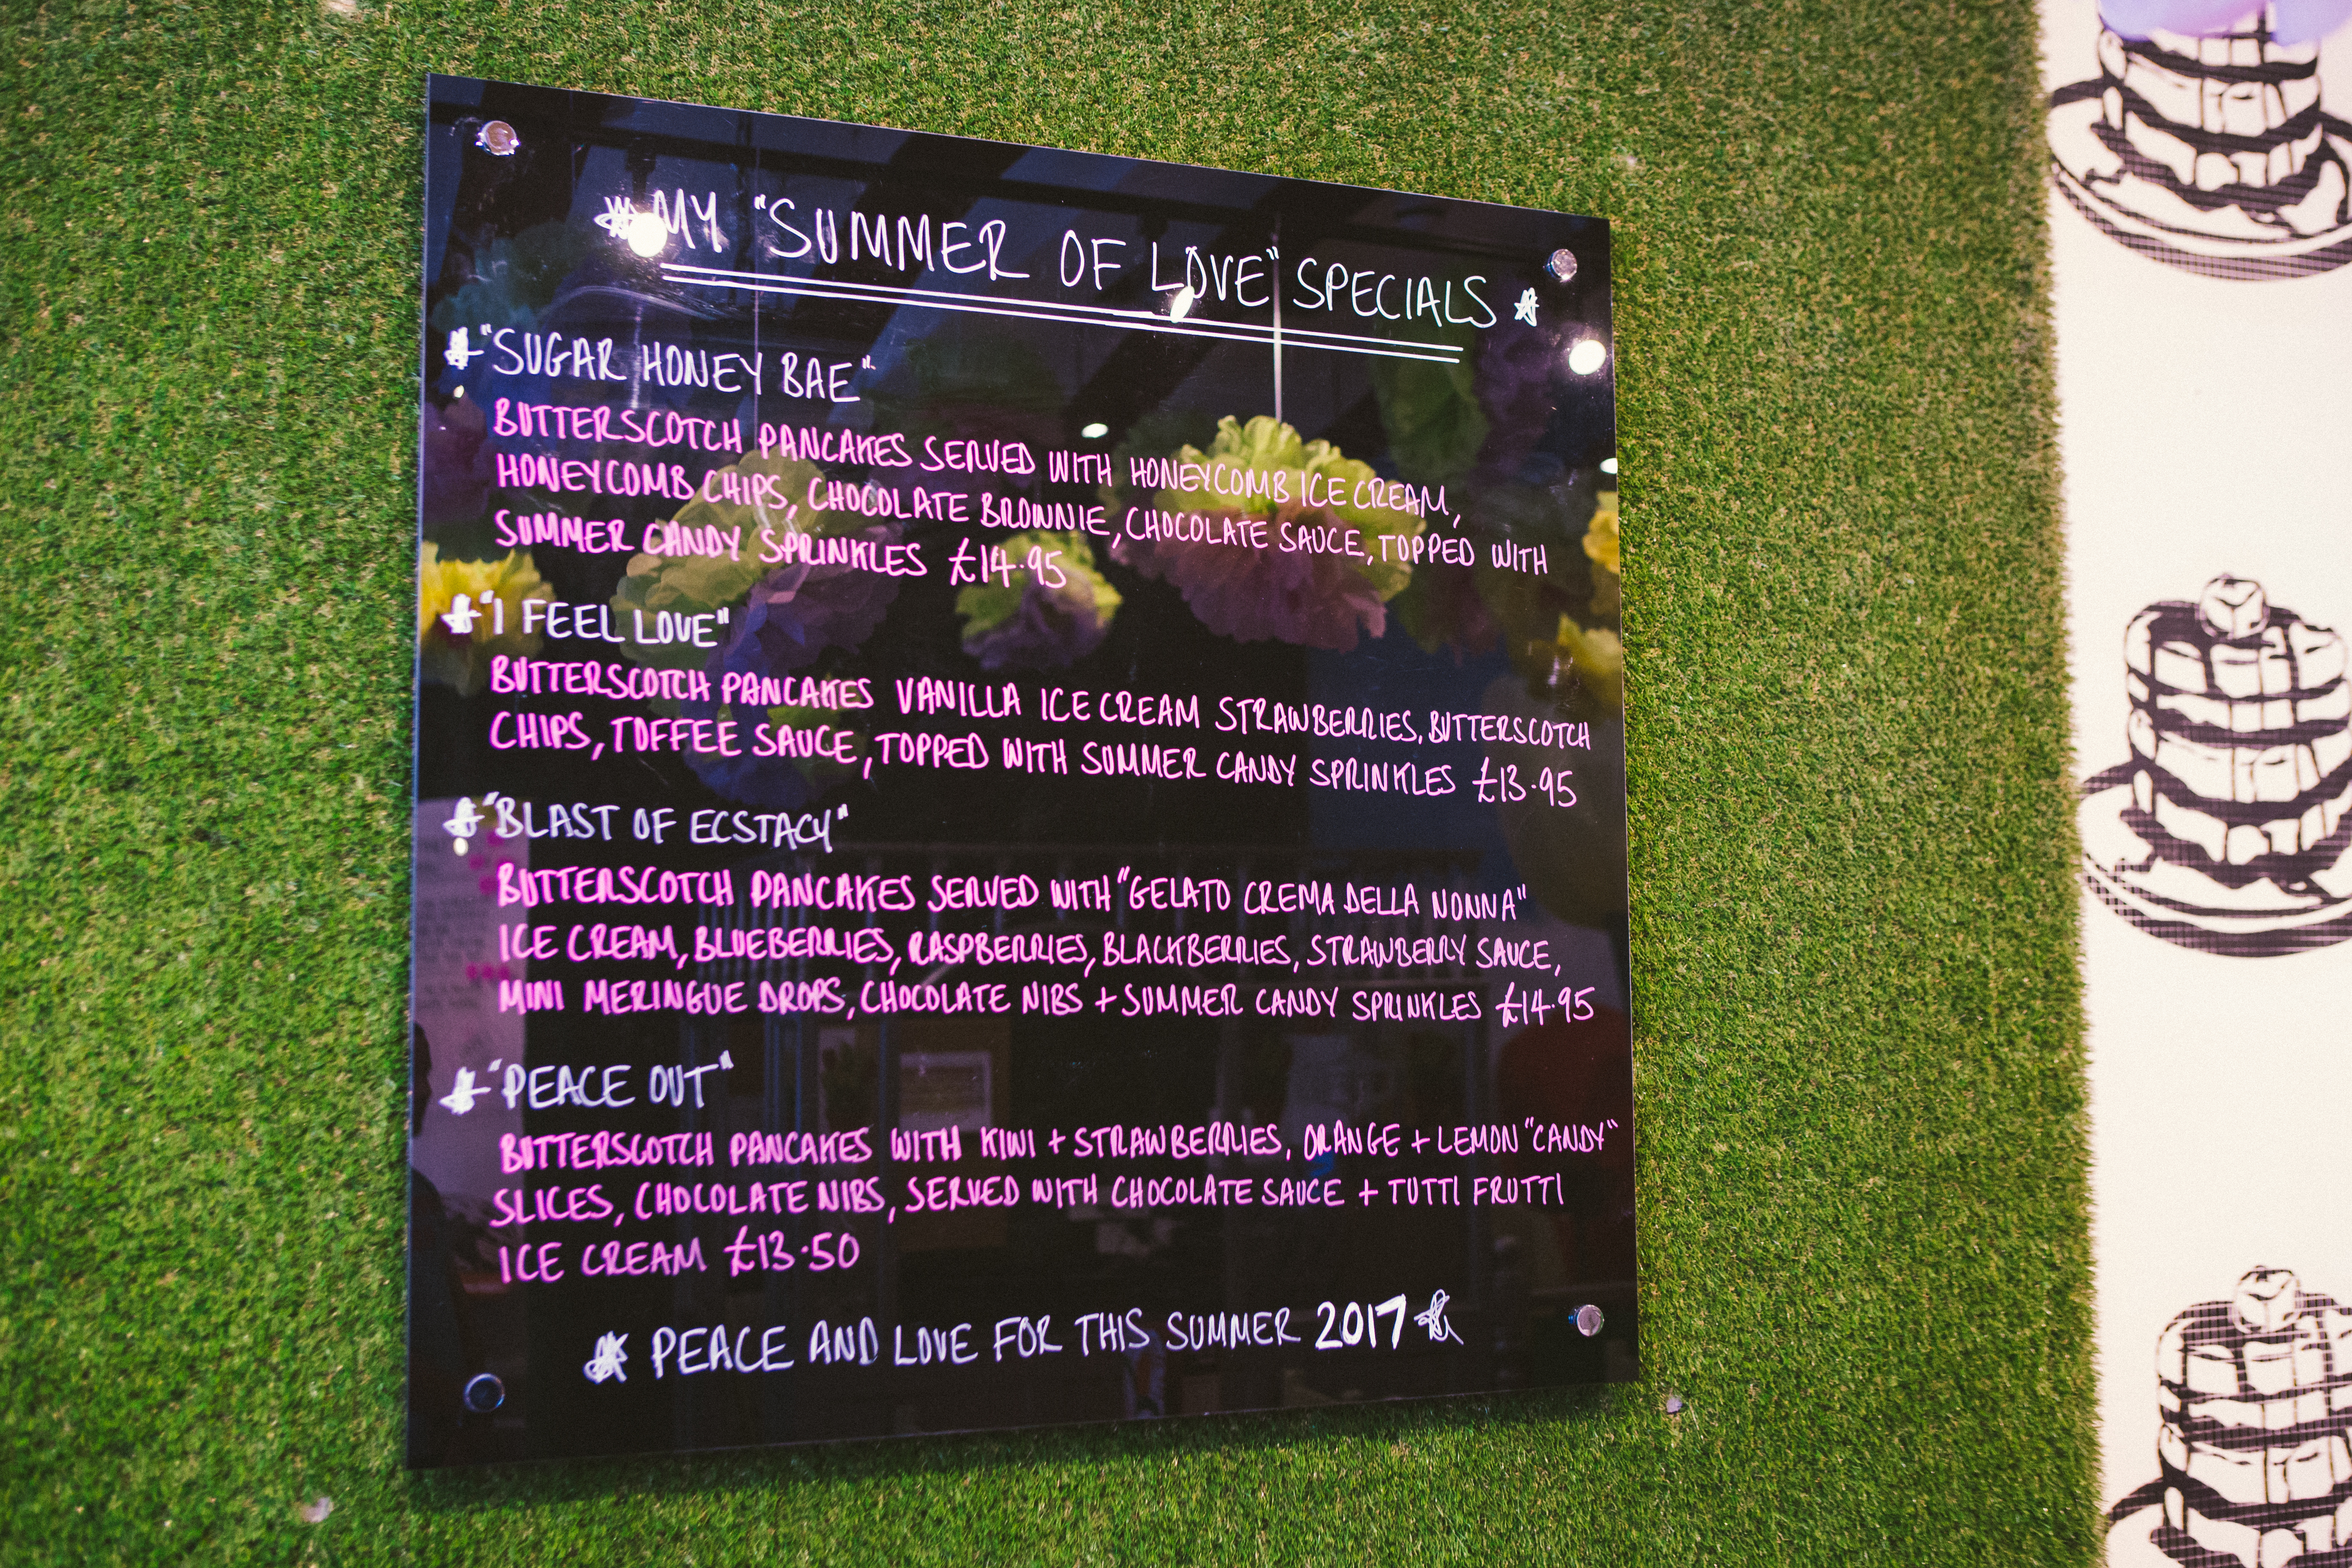 MY "SUMMER OF LOVE" SPECIALS
"SUGAR HONEY BAE"
BUTTERSCOTCH PANCAKES SERVED WITH HONEYCOMB ICE CREAM,
HONEYCOMB CHIPS, CHOCOLATE BROWNIE, CHOCOLATE SAUCE, TOPPED WITH
SUMMER CANDY SPRINKLES £14.95
"I FEEL LOVE"
BUTTERSCOTCH PANCAKES VANILLA ICE CREAM STRAWBERRIES, BUTTERSCOTCH
CHIPS, TOFFEE SAUCE, TOPPED WITH SUMMER CANDY SPRINKLES £13.95
"BLAST OF ECSTACY"
BUTTERSCOTCH PANCAKES SERVED WITH "GELATO CREMA DELLA NONNA"
ICE CREAM, BLUEBERRIES, RASPBERRIES, BLACKBERRIES, STRAWBERRY SAUCE,
MINI MERINGUE DROPS, CHOCOLATE NIBS + SUMMER CANDY SPRINKLES £14.95
"PEACE OUT"
BUTTERSCOTCH PANCAKES WITH KIWI + STRAWBERRIES, ORANGE + LEMON "CANDY"
SLICES, CHOCOLATE NIBS, SERVED WITH CHOCOLATE SAUCE + TUTTI FRUTTI
ICE CREAM £13.50
PEACE AND LOVE FOR THIS SUMMER 2017